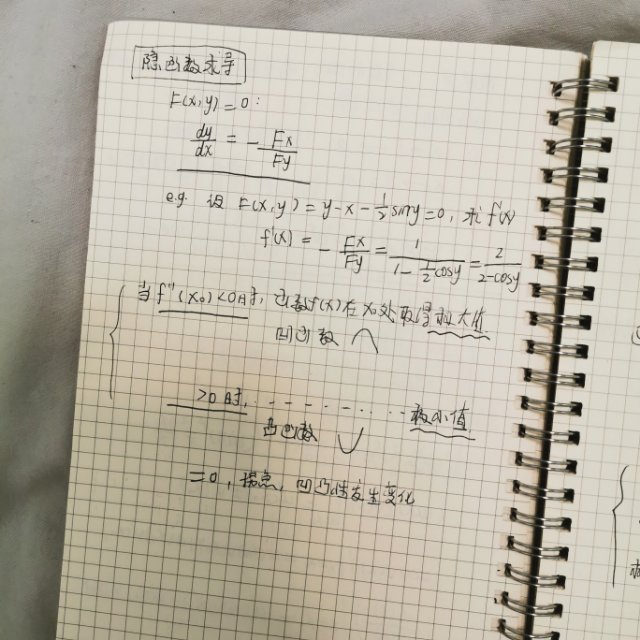 隐函数求导
F(x,y)=0:
dy/dx = - Fx/Fy
e.g 设 F(x,y)=y-x-1/2 siny=0, 求 f'(x)
f'(x) = - Fx/Fy = 1/(1-1/2 cosy) = 2/(2-cosy)
当f"(x0)<0时, 函数f(x)在x0处取得极大值
凹函数
>0时, - - - - - - - - 极小值
凸函数
=0, 拐点, 凹凸性发生变化